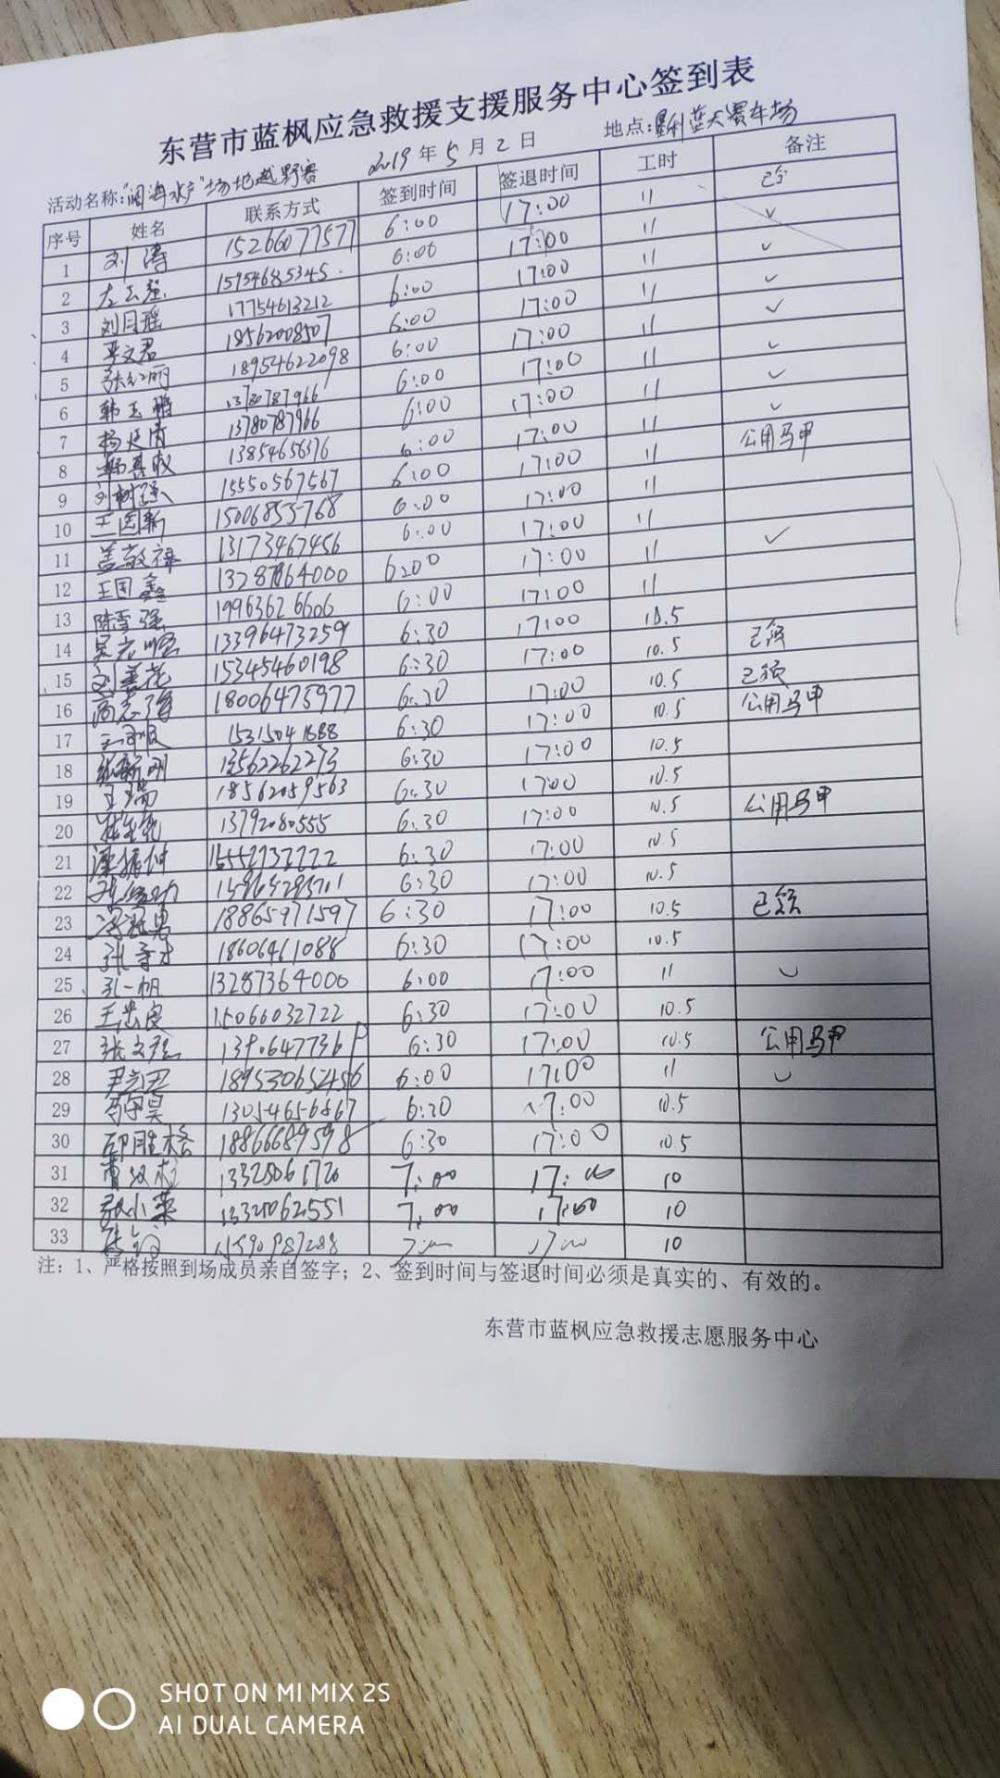 东营市蓝枫应急救援支援服务中心签到表
活动名称:"阔海水产"场地越野赛 2019年5月2日 地点:垦利蓝天赛车场
序号 姓名 联系方式 签到时间 签退时间 工时 备注
1 刘涛 15266077577 6:00 17:00 11
2 15954685345 6:00 17:00 11 ✓
3 刘月瑶 17754613212 6:00 17:00 11 ✓
4 李文君 18562008507 6:00 17:00 11 ✓
5 张红丽 18954622098 6:00 17:00 11 ✓
6 韩玉鹏 13780787966 6:00 17:00 11 ✓
7 杨延清 13780787966 6:00 17:00 11 ✓
8 1385465676 6:00 17:00 11 ✓
9 刘树强 15550567567 6:00 17:00 11 公用马甲
10 王国新 15006855768 6:00 17:00 11
11 盖敬禄 13173467456 6:00 17:00 11
12 王国鑫 17:00 11 ✓
13 陈雪强 19963626606 6:00 17:00 11
14 13396473259 6:30 17:00 10.5
15 刘美花 15345460198 6:30 17:00 10.5 已领
16 高志强 18006475977 6:30 17:00 10.5 已领
17 6:30 17:00 10.5 公用马甲
18 张新刚 13562262273 6:30 17:00 10.5
19 王瑞 18562059563 6:30 17:00 10.5
20 13792080555 6:30 17:00 10.5 公用马甲
21 6:30 17:00 10.5
22 6:30 17:00 10.5
23 18865971597 6:30 17:00 10.5 已领
24 18606461088 6:30 17:00 10.5
25 孔一帆 13287364000 6:00 17:00 11 ✓
26 王忠良 15066032722 6:30 17:00 10.5
27 张文 6:30 17:00 10.5 公用马甲
28 189530652456 6:00 17:00 11 ✓
29 13054656867 6:30 17:00 10.5
30 邵胜格 18866689598 6:30 17:00 10.5
31 7:00 17:00 10
32 张小菜 7:00 17:00 10
33 10
注:1、严格按照到场成员亲自签字;2、签到时间与签退时间必须是真实的、有效的。
东营市蓝枫应急救援志愿服务中心
SHOT ON MI MIX 2S
AI DUAL CAMERA